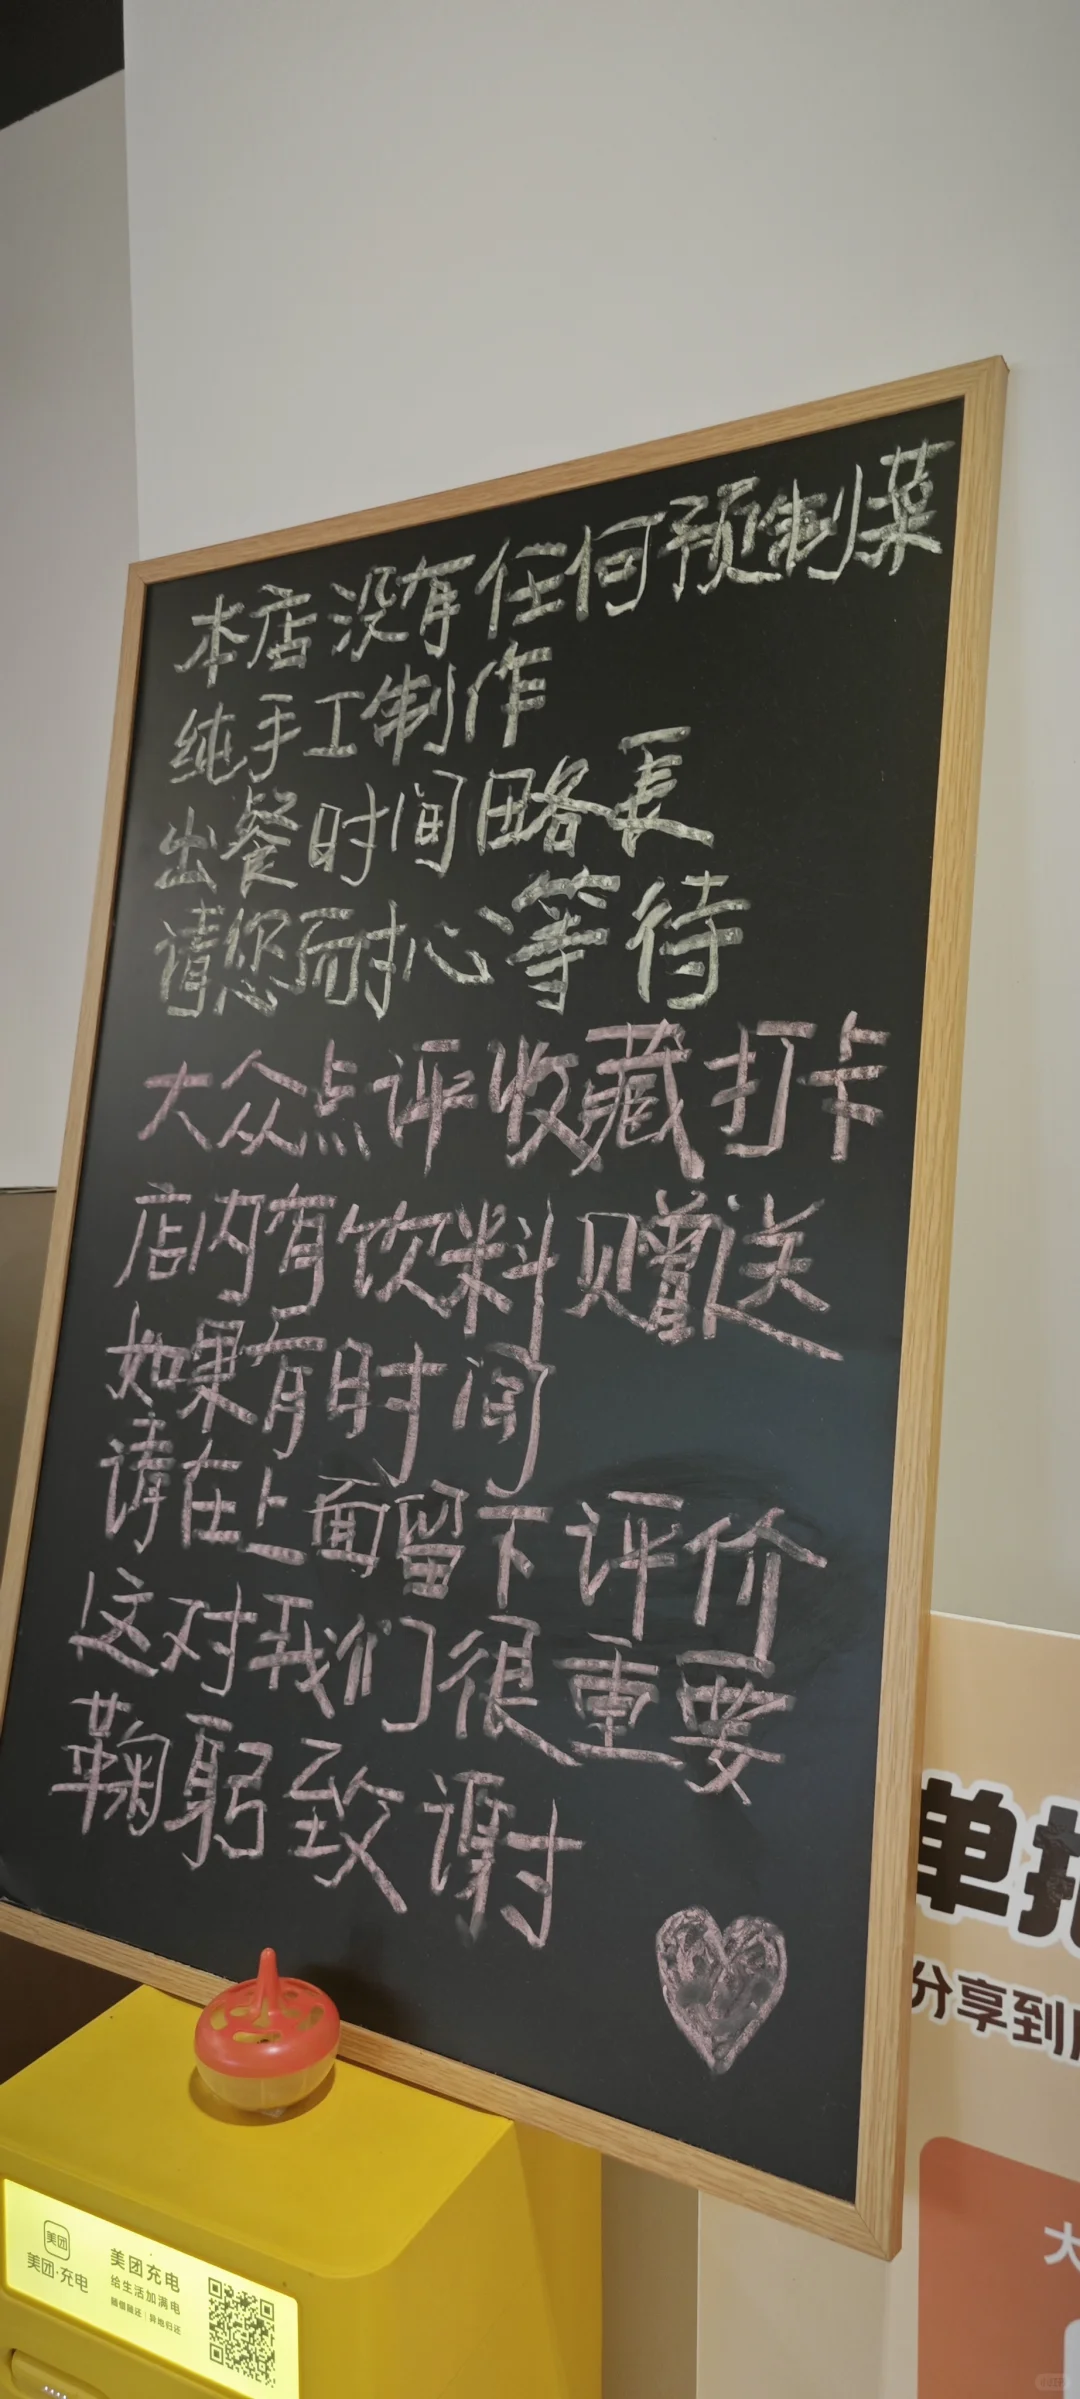 本店没有任何预制菜
纯手工制作
出餐时间略長
请您耐心等待
大众点评收藏打卡
店内有饮料赠送
如果有时间
请在上面留下评价
这对我们很重要
鞠躬致谢
单
分享到
大
美团
美团·充电
美团充电
给生活加满电
随借随还 | 异地归还